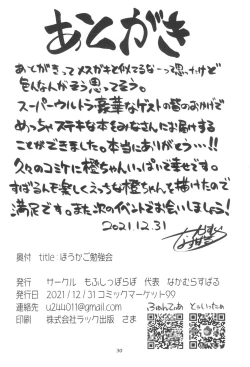 あとがき
あとがきってメスガキと似てるなーって思ったけど
色んなんがそう思ってそう。
スーパーウルトラ豪華なゲストの皆のおかげで
めっちゃステキな本をみなさんにお届けする
ことができました。本当にありがとう…!!
久々のコミケに橙ちゃんいっぱいで幸せです。
すばるんも楽しくえっちな橙ちゃんで描けたので
満足です。また次のイベントでお会いしましょう!
2021.12.31
なかむらすばる
奥付 title:ほうかご勉強会
発行 サークル もふしっぽらぼ 代表 なかむらすばる
発行日 2021/12/31コミックマーケット99
連絡先 u244011@gmail.com
印刷 株式会社ラック出版 さま
ふぁんてぃあ といったー
30